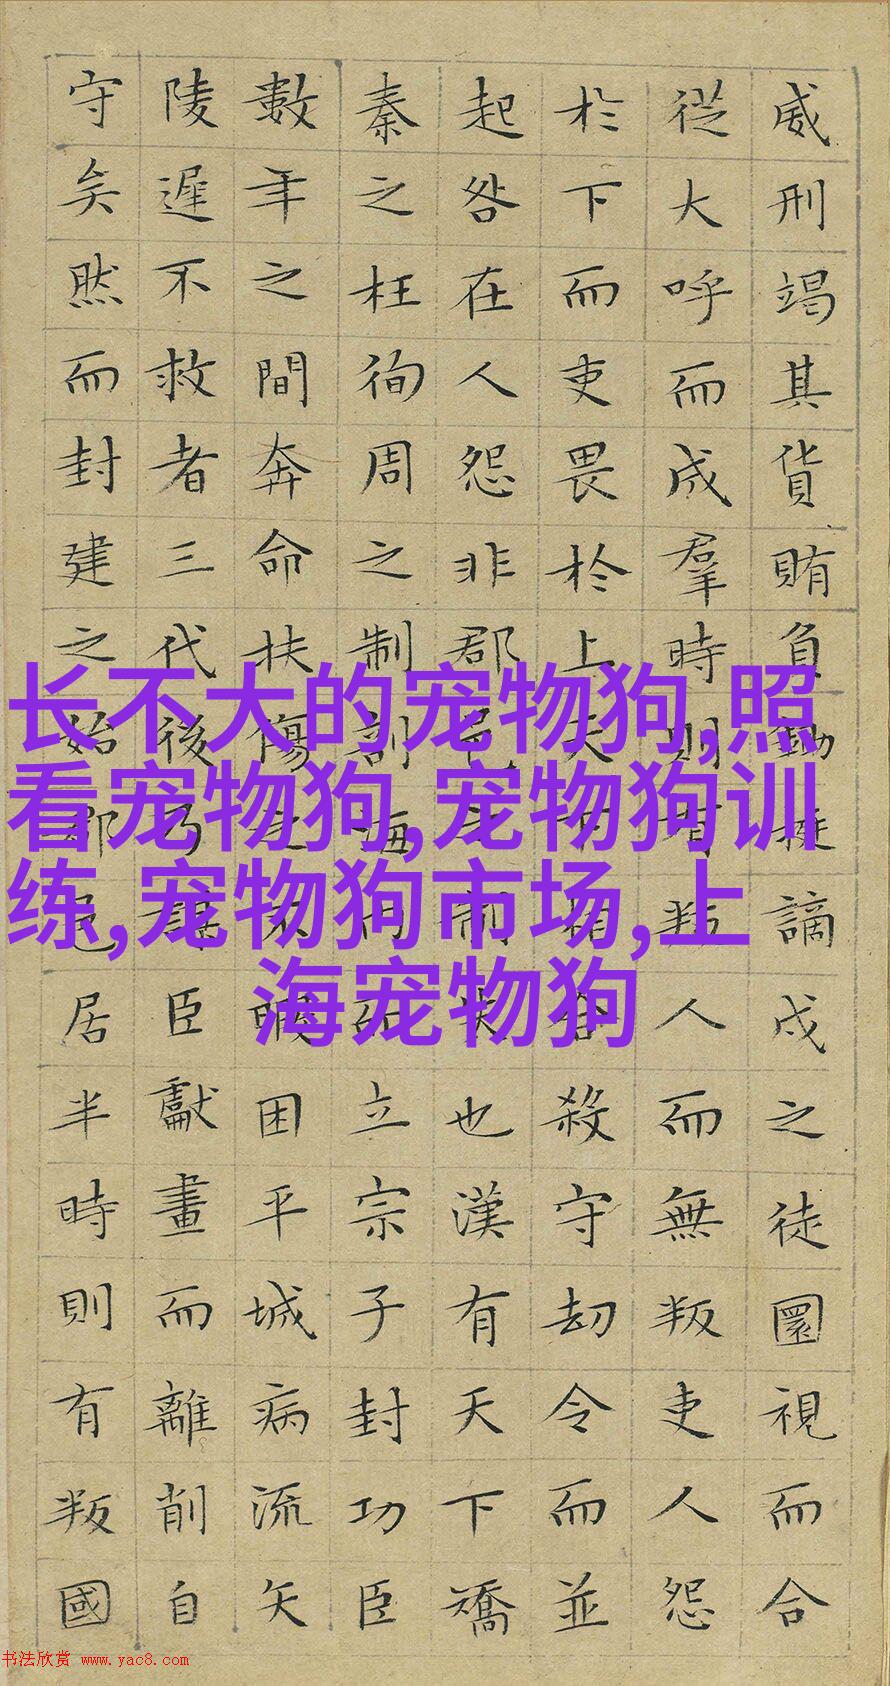 威刑竭其貨賄負鋤梃謫戍之徒圜視而合
從大呼而成羣時則有叛人而無叛吏人怨
於下而吏畏於上天下相合殺守劫令而並
起咎在人怨非郡邑之制失也漢有天下矯
秦之枉徇周之制剖海內而立宗子封功臣
數年之間奔命扶傷之不暇困平城病流矢
陵遲不救者三代後乃謀臣獻畫而離削自
守矣然而封建之始郡邑居半時則有叛國
长不大的宠物狗,照
看宠物狗,宠物狗训
练,宠物狗市场,上
海宠物狗
书法欣赏 www.yac8.com